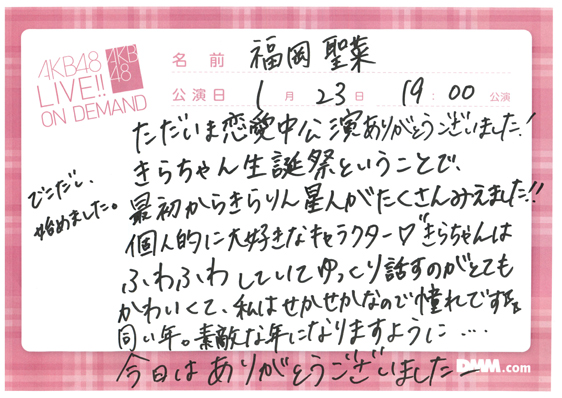 AKB48
LIVE!!
ON DEMAND
AKB
48
名前 福岡 聖菜
公演日 1月23日 19:00 公演
ただいま恋愛中公演ありがとうございました!
きらちゃん生誕祭ということで、
最初からきらりん星人がたくさんみえました!!
個人的に大好きなキャラクター♡きらちゃんは
ふわふわしていてゆっくり話すのがとても
かわいくて、私はせかせかなので憧れです
同い年。素敵な年になりますように…
今日はありがとうございましたー
でこだし、
始めました。
DMM.com